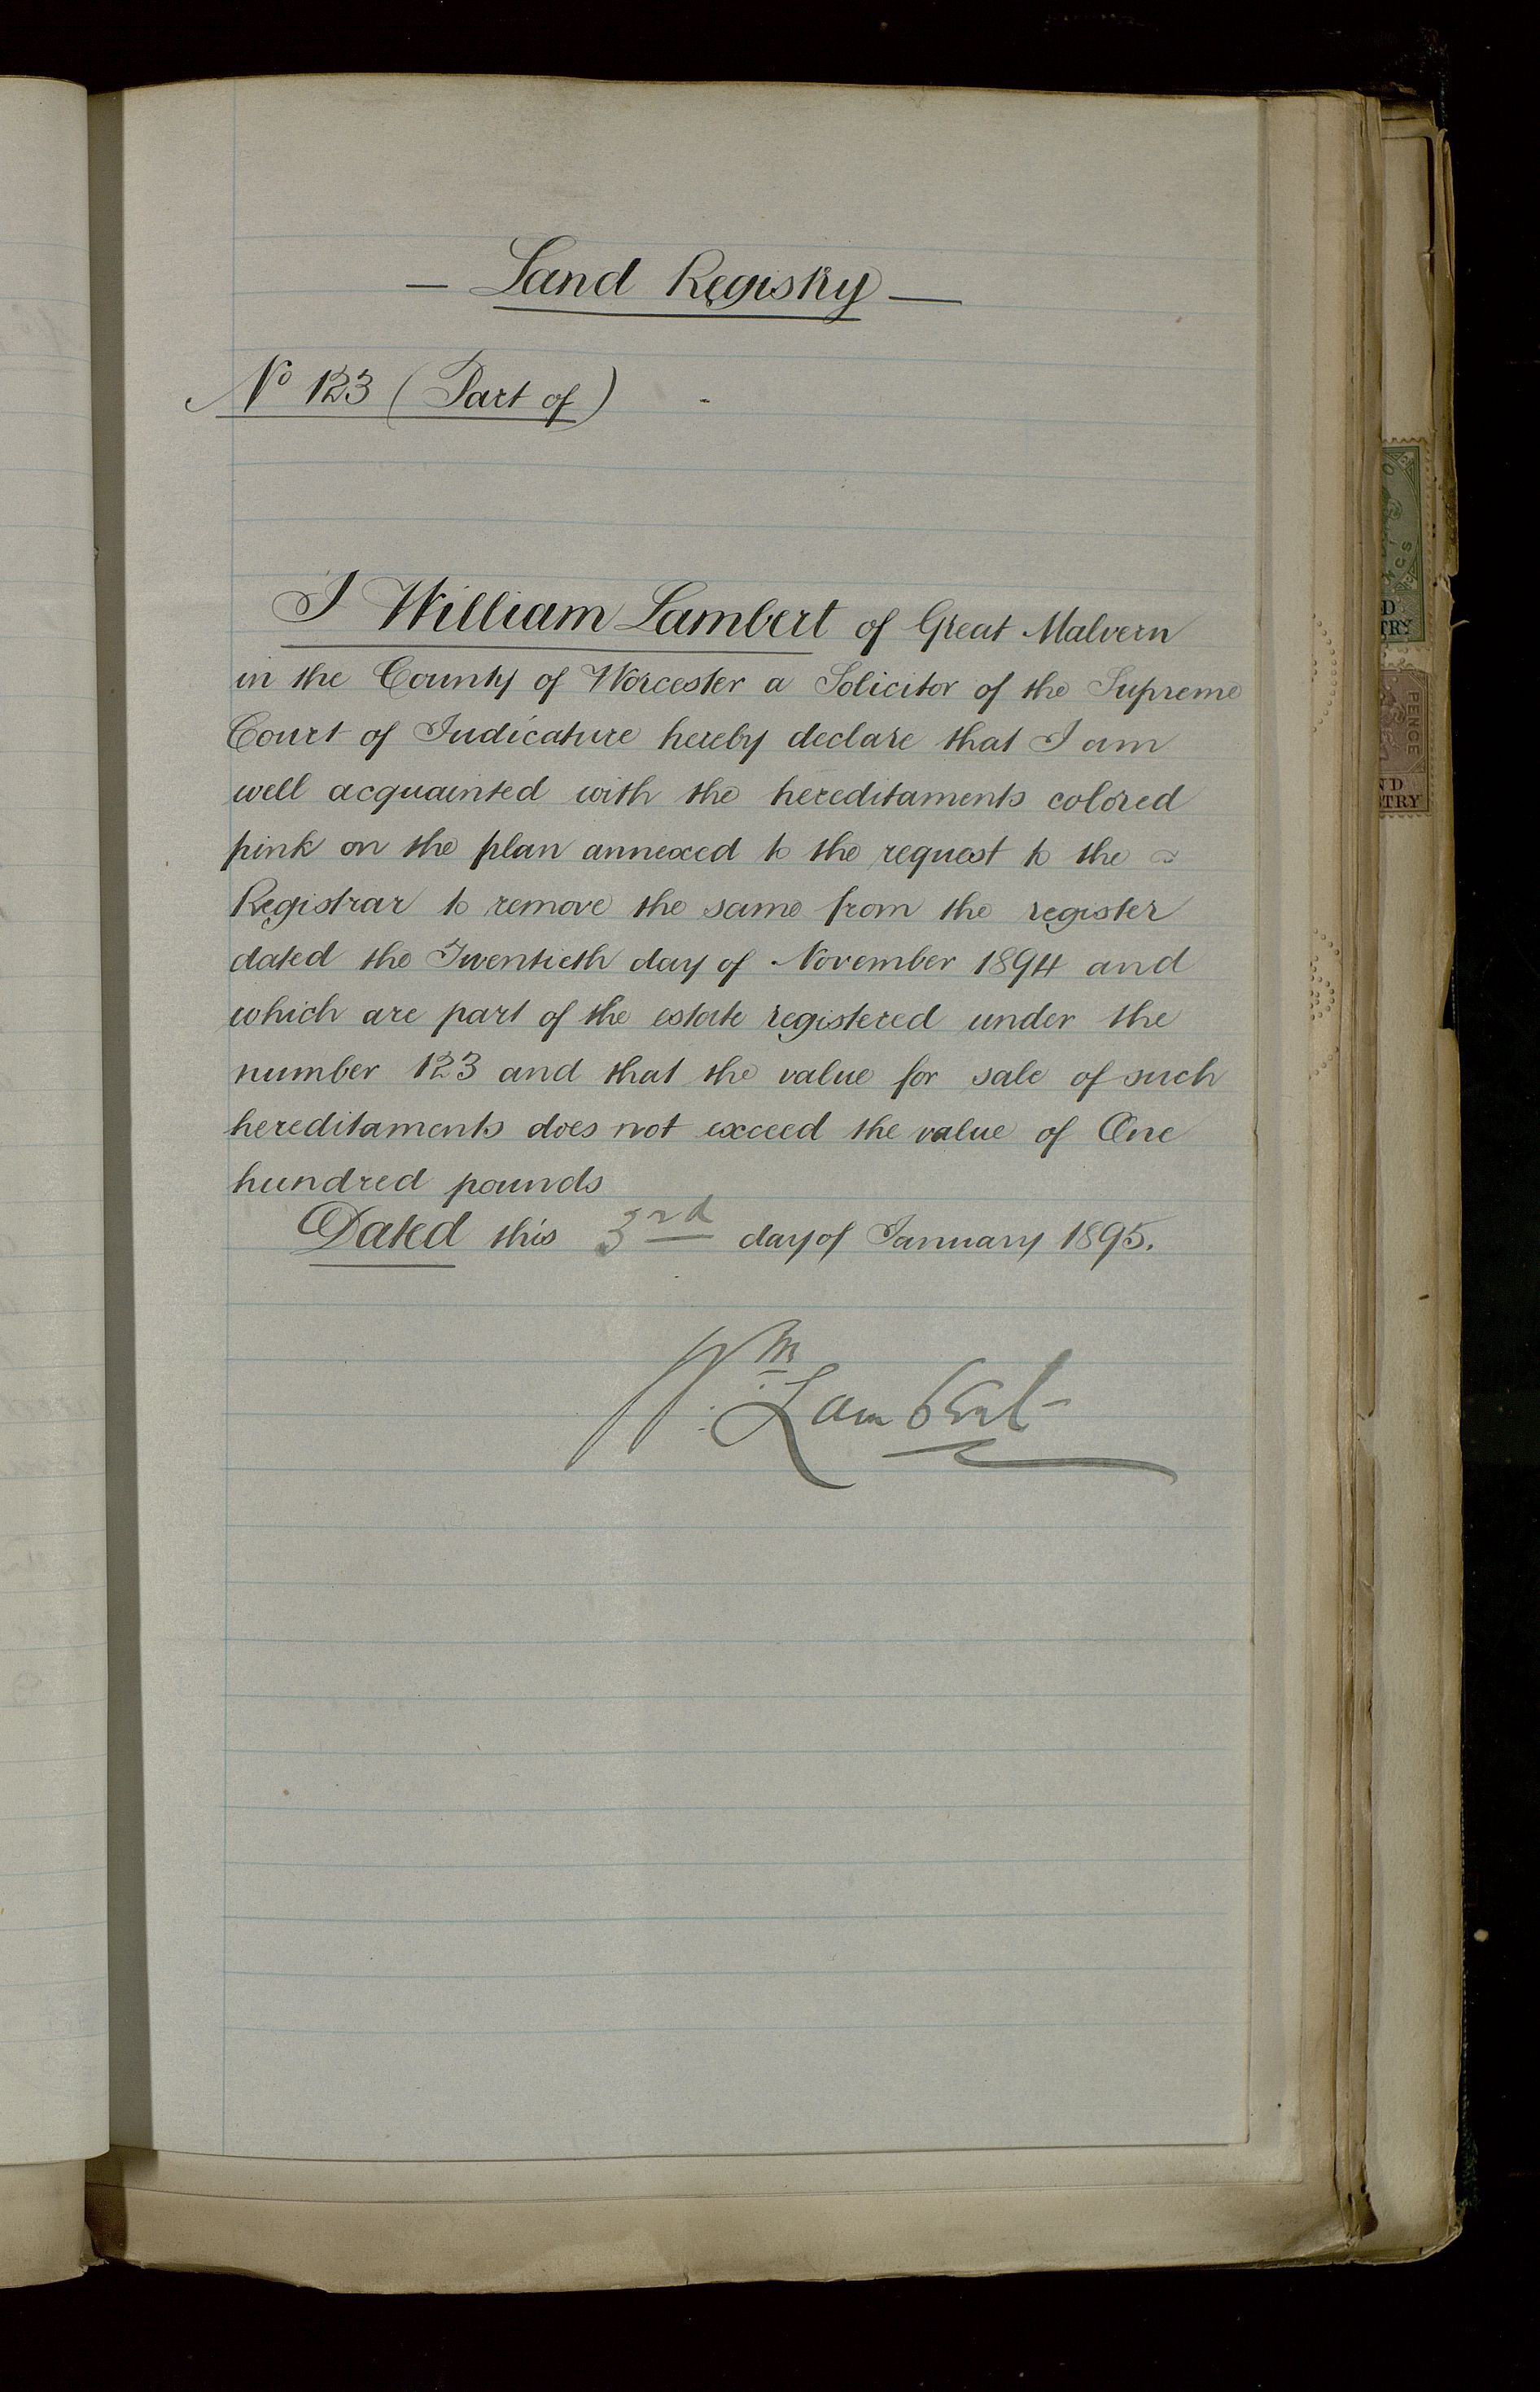 — Land Registry —
No 123 (Part of)
I William Lambert of Great Malvern
in the County of Worcester a Solicitor of the Supreme
Court of Judicature hereby declare that I am
well acquainted with the hereditaments colored
pink on the plan annexed to the request to the
Registrar to remove the same from the register
dated the Twentieth day of November 1894 and
which are part of the estate registered under the
number 123 and that the value for sale of such
hereditaments does not exceed the value of One
hundred pounds
Dated this 3rd day of January 1895.
Wm Lambert
PENCE